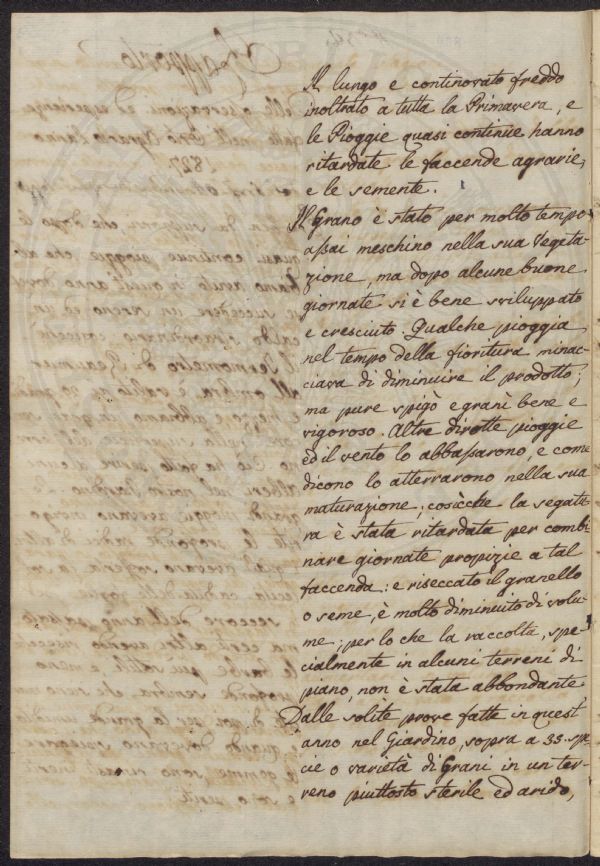 Il lungo e continovato freddo
inoltrato a tutta la Primavera, e
le Pioggie quasi continue hanno
ritardate le faccende agrarie,
e le semente.
Il Grano è stato per molto tempo
assai meschino nella sua Vegeta-
zione, ma dopo alcune buone
giornate si è bene sviluppato
e cresciuto. Qualche pioggia
nel tempo della fioritura minac
ciava di diminuire il prodotto;
ma pure spigò e granì bene e
vigoroso. Altre dirotte pioggie
ed il vento lo abbassarono, e come
dicono lo atterrarono nella sua
maturazione; cosicche la segatu
ra è stata ritardata per combi
nare giornate propizie a tal
faccenda: e riseccato il granello
o seme, è molto diminuito di volu-
me; per lo che la raccolta, spe-
cialmente in alcuni terreni di
piano, non è stata abbondante
Dalle solite prove fatte in quest'
anno nel Giardino, sopra a 35. spe
cie o varietà di Grani in un ter-
reno piuttosto sterile ed arido,